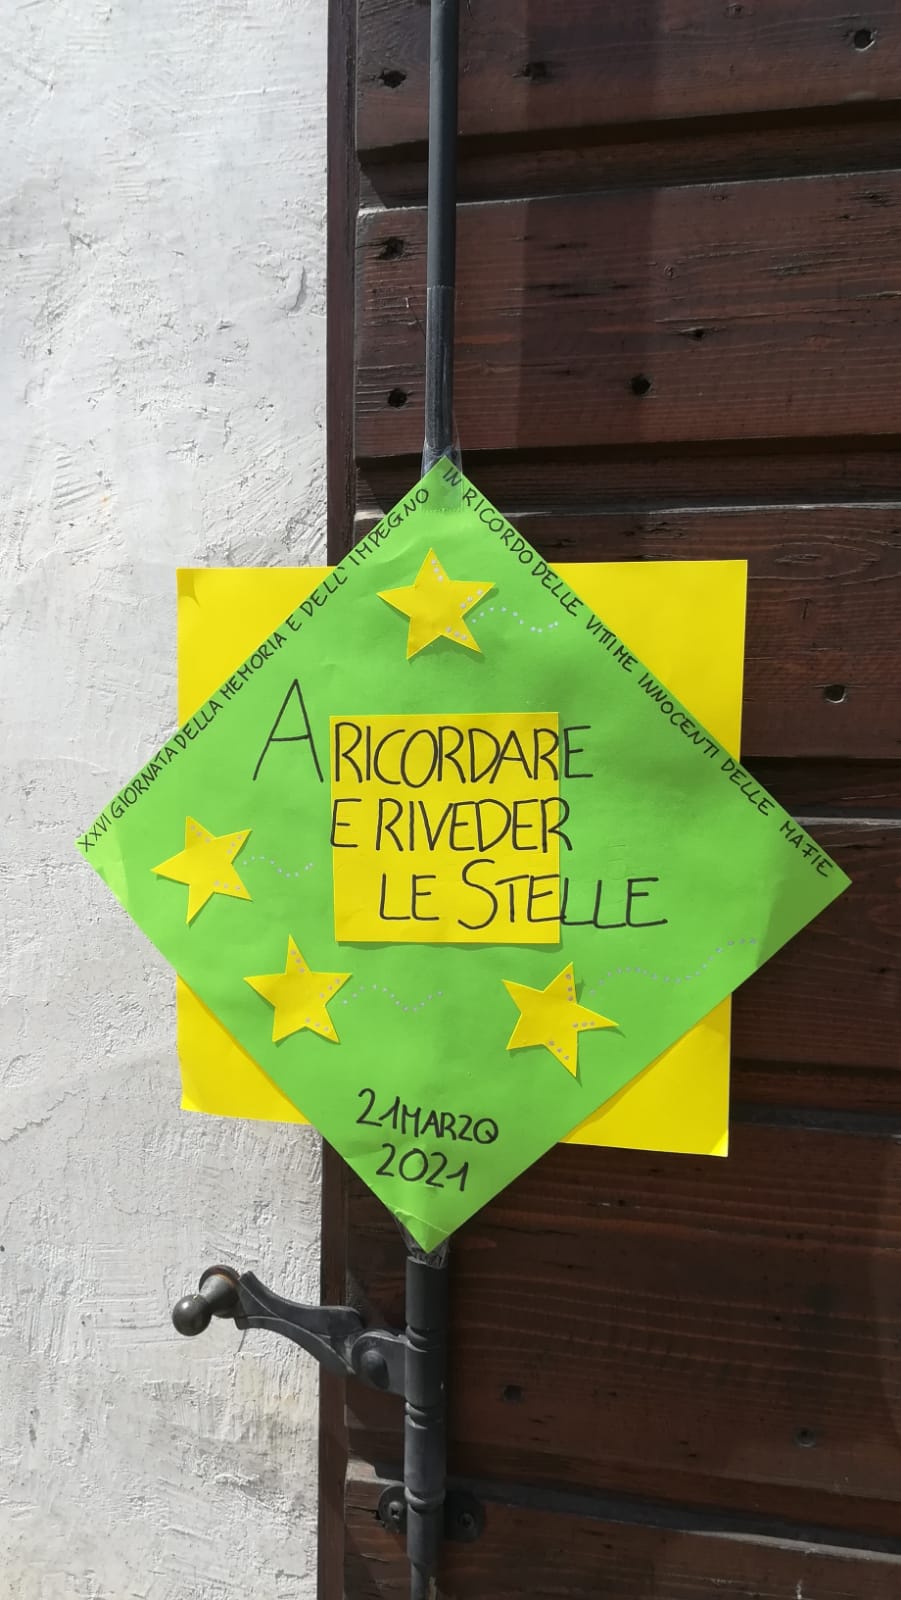 XXVI GIORNATA DELLA MEMORIA E DELL'IMPEGNO
IN RICORDO DELLE VITTIME INNOCENTI DELLE MAFIE
A RICORDARE
E RIVEDER
LE STELLE
21 MARZO
2021